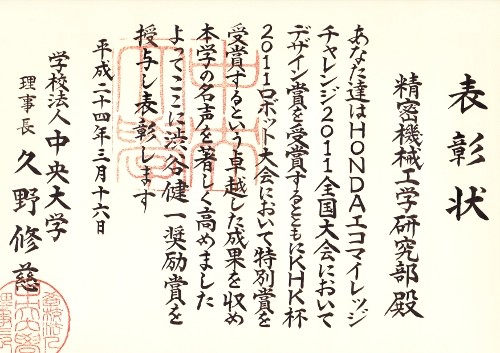 表彰状
精密機械工学研究部殿
あなた達はHONDAエコマイレッジ
チャレンジ2011全国大会において
デザイン賞を受賞するとともにKHK杯
2011ロボット大会において特別賞を
受賞するという卓越した成果を収め
本学の名声を著しく高めました
よってここに渋谷健一奨励賞を
授与し表彰します
平成二十四年三月十六日
学校法人中央大学
理事長 久野修慈